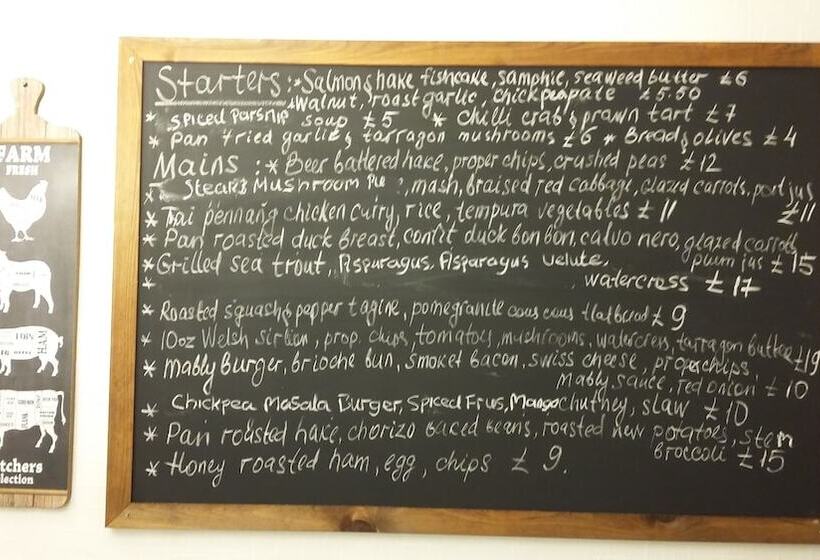 FARM
FRESH
HAM
tchers
lection
Starters : * Salmon & hake fishcake, samphie, seaweed butter £6
* Walnut, roast garlic, chickpea pate £5.50
* Spiced Parsnip soup £5 * Chilli crab & prawn tart £7
* Pan fried garlic & tarragon mushrooms £6 * Bread & olives £4
Mains : * Beer battered hake, proper chips, crushed peas £12
* Steak & Mushroom Pie, mash, braised red cabbage, glazed carrots, port jus
£11
* Tai pennang chicken curry, rice, tempura vegetables £11
* Pan roasted duck breast, confit duck bon bon, calvo nero, glazed carrots
plum jus £15
* Grilled sea trout, Asparagus, Asparagus velute,
* watercress £17
* Roasted squash & pepper tagine, pomegranite cous cous flatbread £9
* 10oz Welsh sirloin, prop. chips, tomatoes, mushrooms, watercress, tarragon butter £19
* Mably burger, brioche bun, smoked bacon, swiss cheese, proper chips,
Mably sauce, red onion £10
* Chickpea Masala Burger, Spiced Fries, Mango chutney, slaw £10
* Pan roasted hake, chorizo baced beans, roasted new potatoes, stem
broccoli £15
* Honey roasted ham, egg, chips £9.